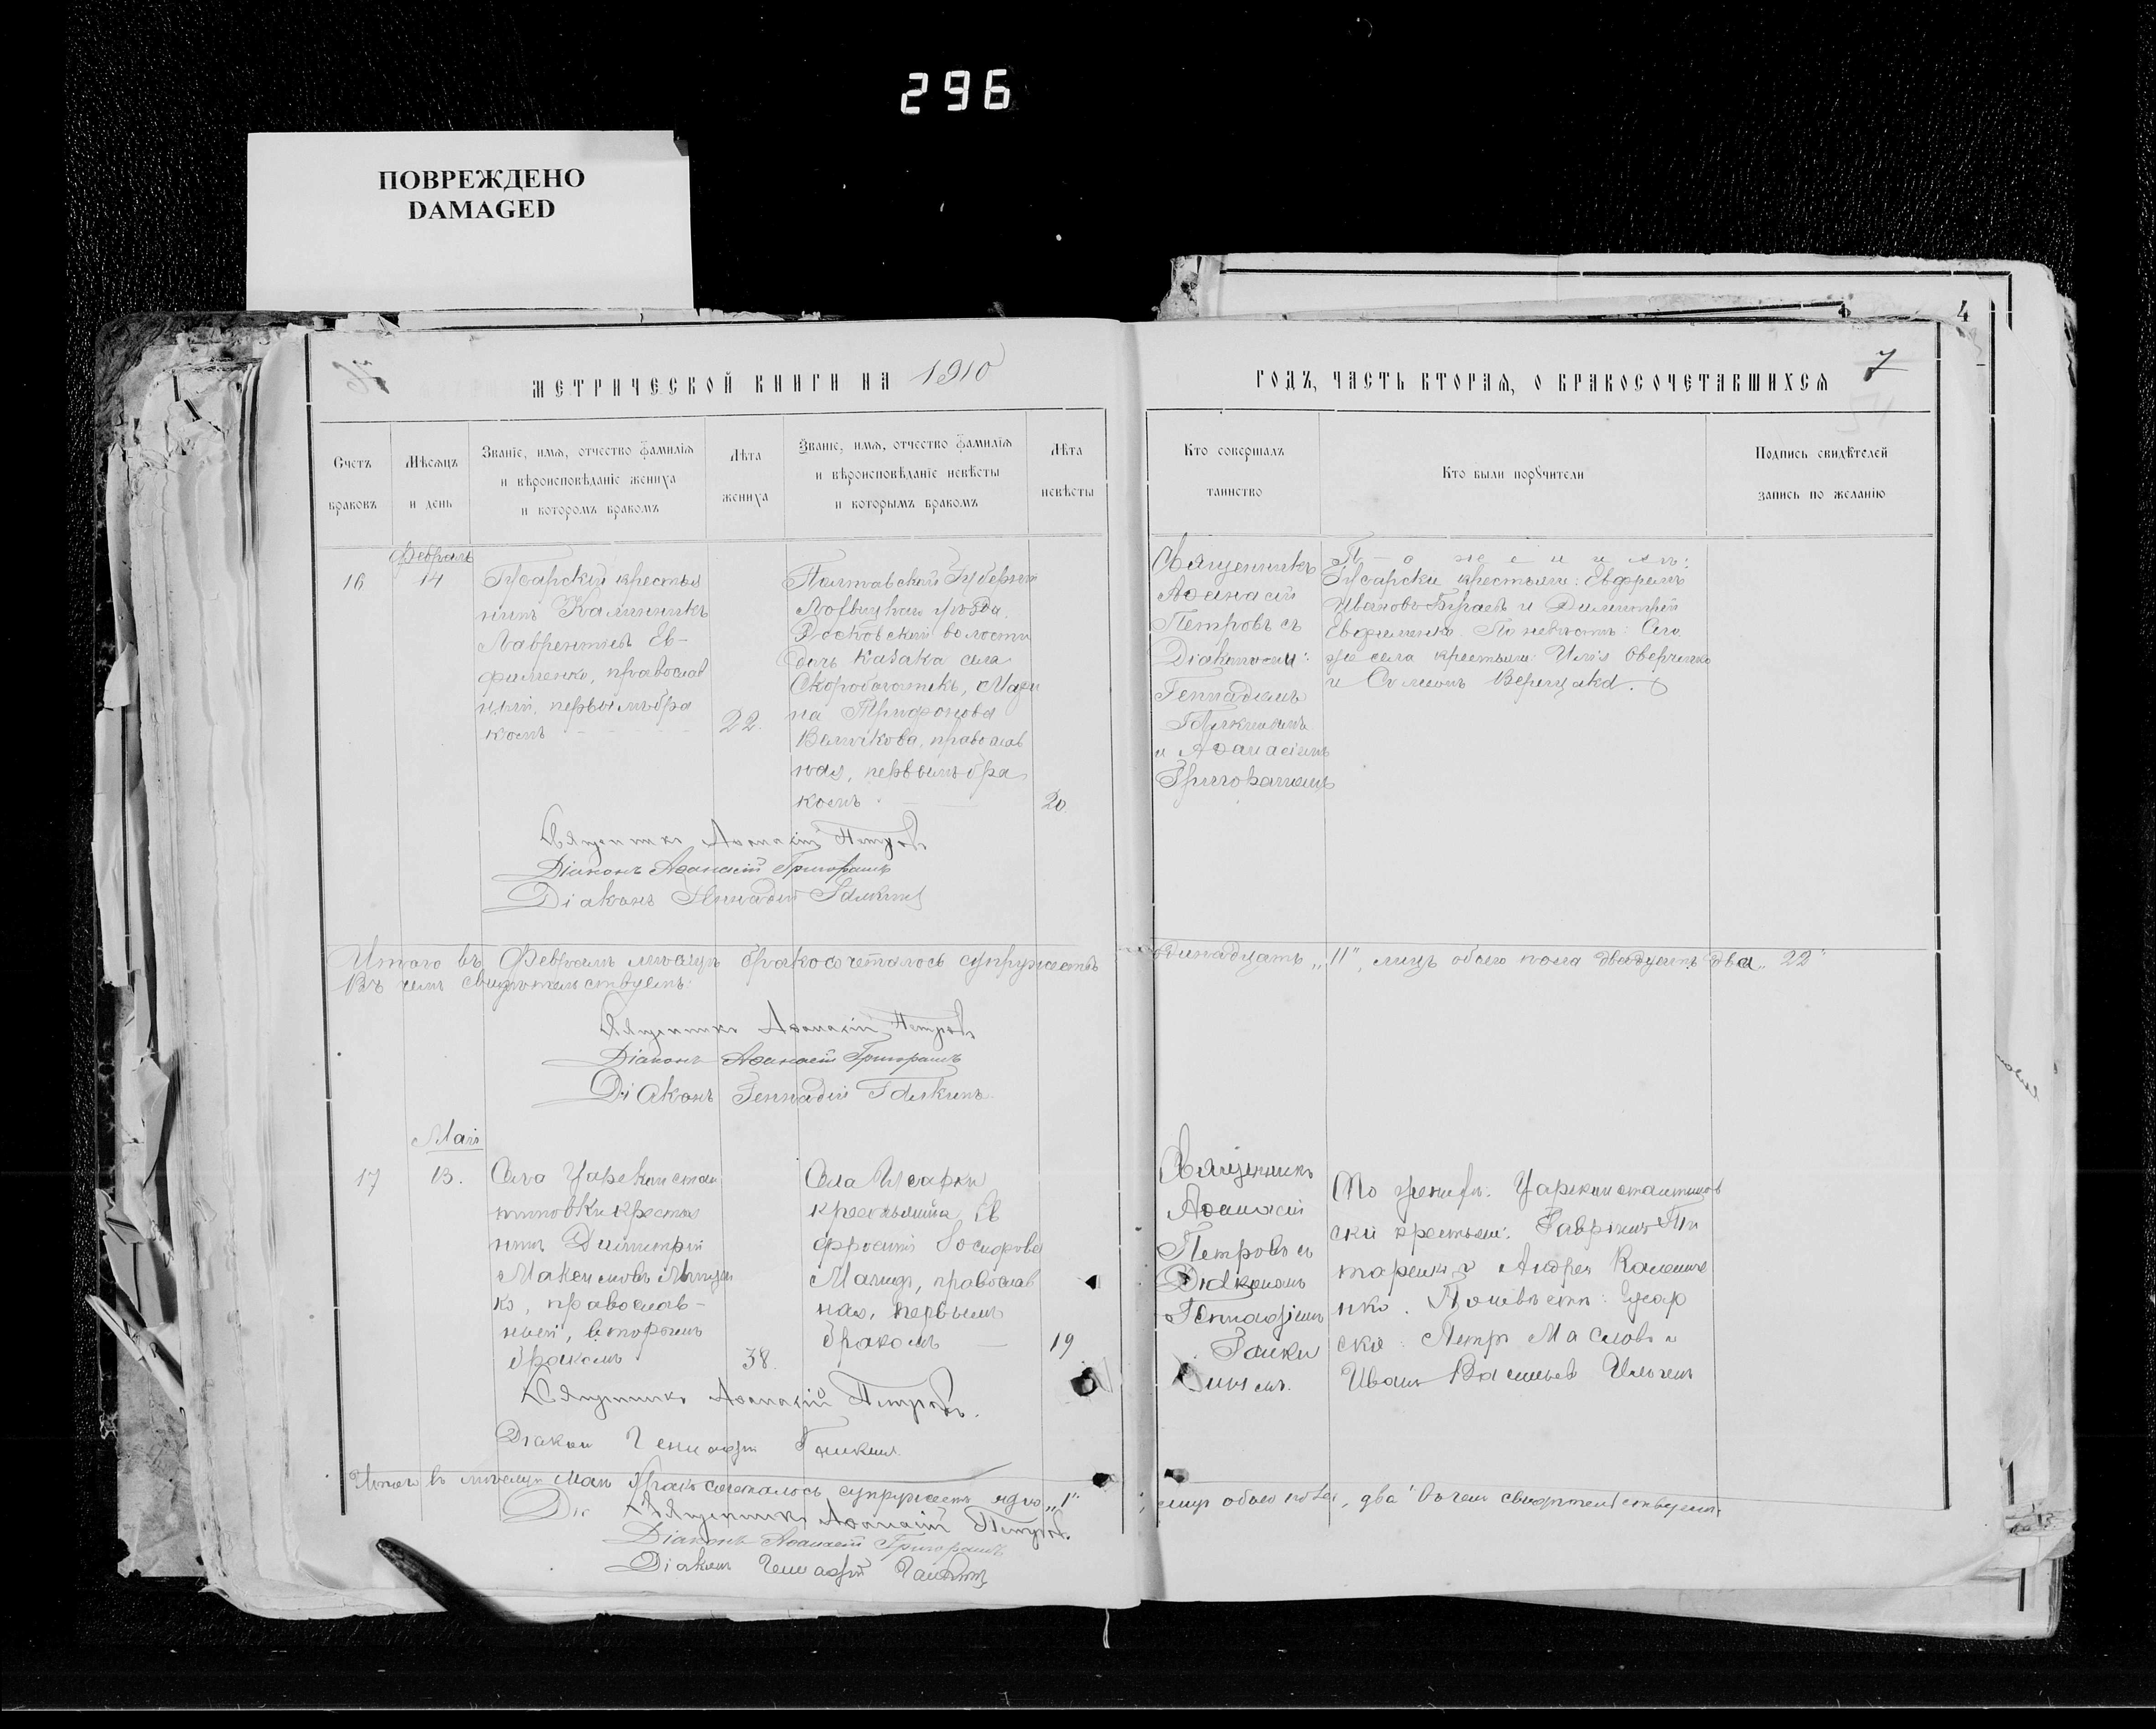 296
ПОВРЕЖДЕНО
DAMAGED
4
7
МЕТРИЧЕСКОЙ КНИГИ НА 1910
ГОДЪ, ЧАСТЬ ВТОРАЯ, О БРАКОСОЧЕТАВШИХСЯ
Счетъ
браковъ
Мѣсяцъ
и день
Званіе, имя, отчество фамилія
и вѣроисповѣданіе жениха
и которомъ бракомъ
Лѣта
жениха
Званіе, имя, отчество фамилія
и вѣроисповѣданіе невѣсты
и которымъ бракомъ
Лѣта
невѣсты
Кто совершалъ
таинство
Кто были поручители
Подпись свидѣтелей
запись по желанію
Февраль
16
14
крестья
нинъ Калинникъ
Лаврентьевъ Ев-
фименко, православ
ный, первымъ бра
комъ
22.
Полтавской Губерніи
уѣзда
волости
дочь казака села
Мари
на Трифонова
православ
ная, первымъ бра
комъ
20.
Священникъ
Аѳанасій
Петровъ съ
Діаконами:
Геннадіемъ
Галкинымъ
и Аѳанасіемъ
Григорашемъ
По жениху:
крестьяне: Ефремъ
Ивановъ и Димитрій
Евфименко. По невѣстѣ: Сего
же села крестьяне: Илія Оверченко
и Симеонъ Верещака.
Священникъ Аѳанасій Петровъ
Діаконъ Аѳанасій Григорашъ
Діаконъ Геннадій Галкинъ
Итого въ Февралѣ мѣсяцѣ бракосочеталось супружествъ одинадцать „11", лицъ обоего пола двадцать два „22"
Въ чемъ свидѣтельствуемъ:
Священникъ Аѳанасій Петровъ
Діаконъ Аѳанасій Григорашъ
Діаконъ Геннадій Галкинъ
Май
17
13.
Села Цареконстан
тиновки крестья
нинъ Димитрій
Максимовъ
ко, православ-
ный, вторымъ
бракомъ
38.
Села
крестьянка Ев
фросинія Іосифова
православ
ная, первымъ
бракомъ
19
Священникъ
Аѳанасій
Петровъ съ
Діакономъ
Геннадіемъ
Галки
нымъ.
По женихѣ: Цареконстантинов
скіе крестьяне: Гавріилъ Ти
таренко и Андрей
нко. По невѣстѣ:
скіе: Петръ Масловъ и
Иванъ Васильевъ
Священникъ Аѳанасій Петровъ.
Діаконъ Геннадій Галкинъ
Итого въ мѣсяцѣ Маѣ бракосочеталось супружествъ одно „1" лицъ обоего пола, два въ чемъ свидѣтельствуемъ:
Священникъ Аѳанасій Петровъ.
Діаконъ Аѳанасій Григорашъ
Діаконъ Геннадій Галкинъ